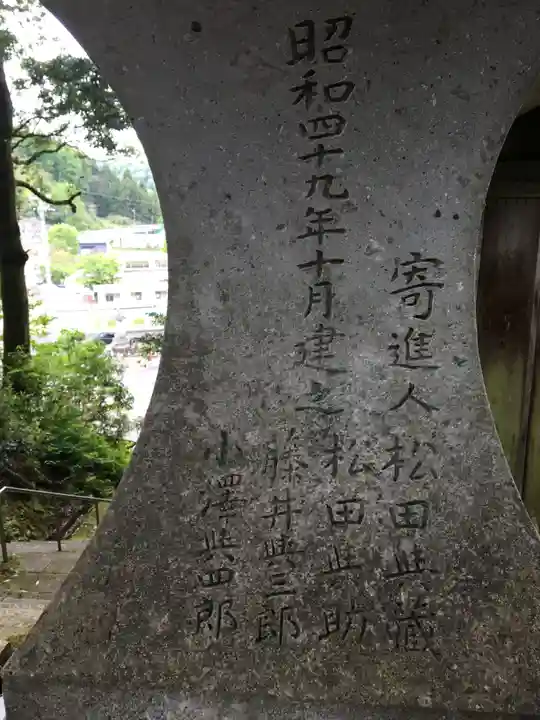 寄進人松田與藏
松田與助
藤井與三郎
小澤與四郎
昭和四十九年十月建之